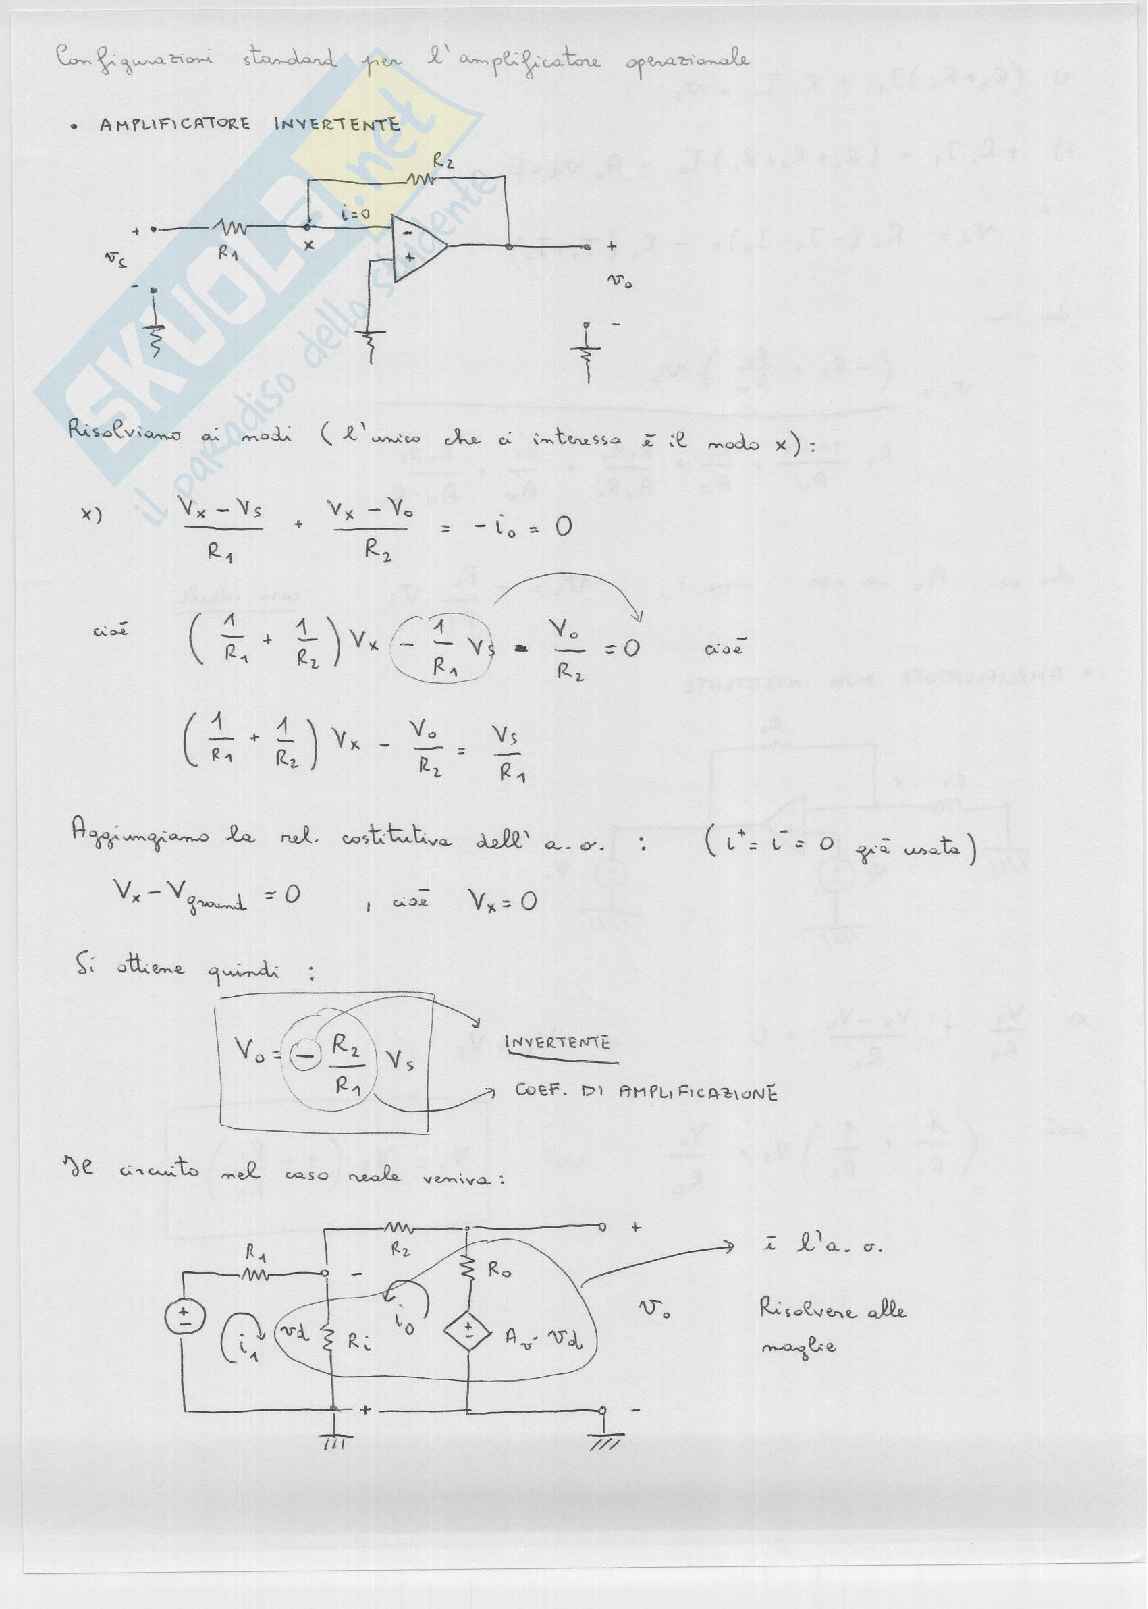 Configurazioni standard per l'amplificatore operazionale
• AMPLIFICATORE INVERTENTE
R2
i=0
+ R1 x - + +
vs vo
- -
SKUOLA.net
il paradiso dello studente
Risolviamo ai nodi (l'unico che ci interessa è il nodo x):
x) (Vx - Vs)/R1 + (Vx - Vo)/R2 = -io = 0
cioè (1/R1 + 1/R2) Vx - 1/R1 Vs - Vo/R2 = 0 cioè
(1/R1 + 1/R2) Vx - Vo/R2 = Vs/R1
Aggiungiamo la rel. costitutiva dell'a.o. : (i+ = i- = 0 già usata)
Vx - Vground = 0 , cioè Vx = 0
Si ottiene quindi :
Vo = - R2/R1 Vs
INVERTENTE
COEF. DI AMPLIFICAZIONE
Il circuito nel caso reale veniva:
R2 +
R1 - Ro è l'a.o.
+ - i1 vd Ri io + - Av·vd vo Risolvere alle
maglie
+ -